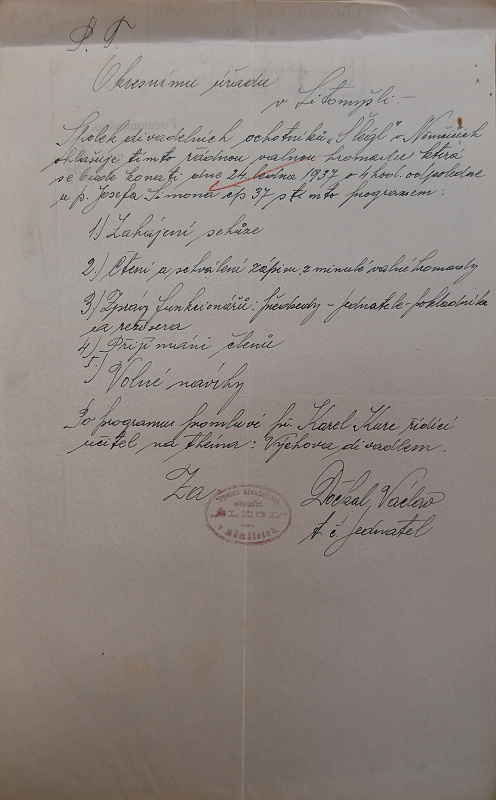 P. T
Okresnímu úřadu
v Litomyšli.-
Spolek divadelních ochotníků „Šlégl" v Němčicích
ohlašuje tímto řádnou valnou hromadu která
se bude konati dne 24 ledna 1937 o 4 hod. odpoledne
u p. Josefa Šimona čp 37 s tímto programem:
1.) Zahájení schůze
2.) Čtení a schválení zápisu z minulé valné hromady
3.) Zprávy funkcionářů: předsedy - jednatele - pokladníka
a režiséra
4.) Přijímání členů
5.) Volné návrhy
Po programu promluví př. Karel Kurc řídící
učitel na théma: Výchova divadlem.
Za
Spolek divadelních
ochotníků
„ŠLÉGL"
v Němčicích
Dočkal Václav
t. č. jednatel